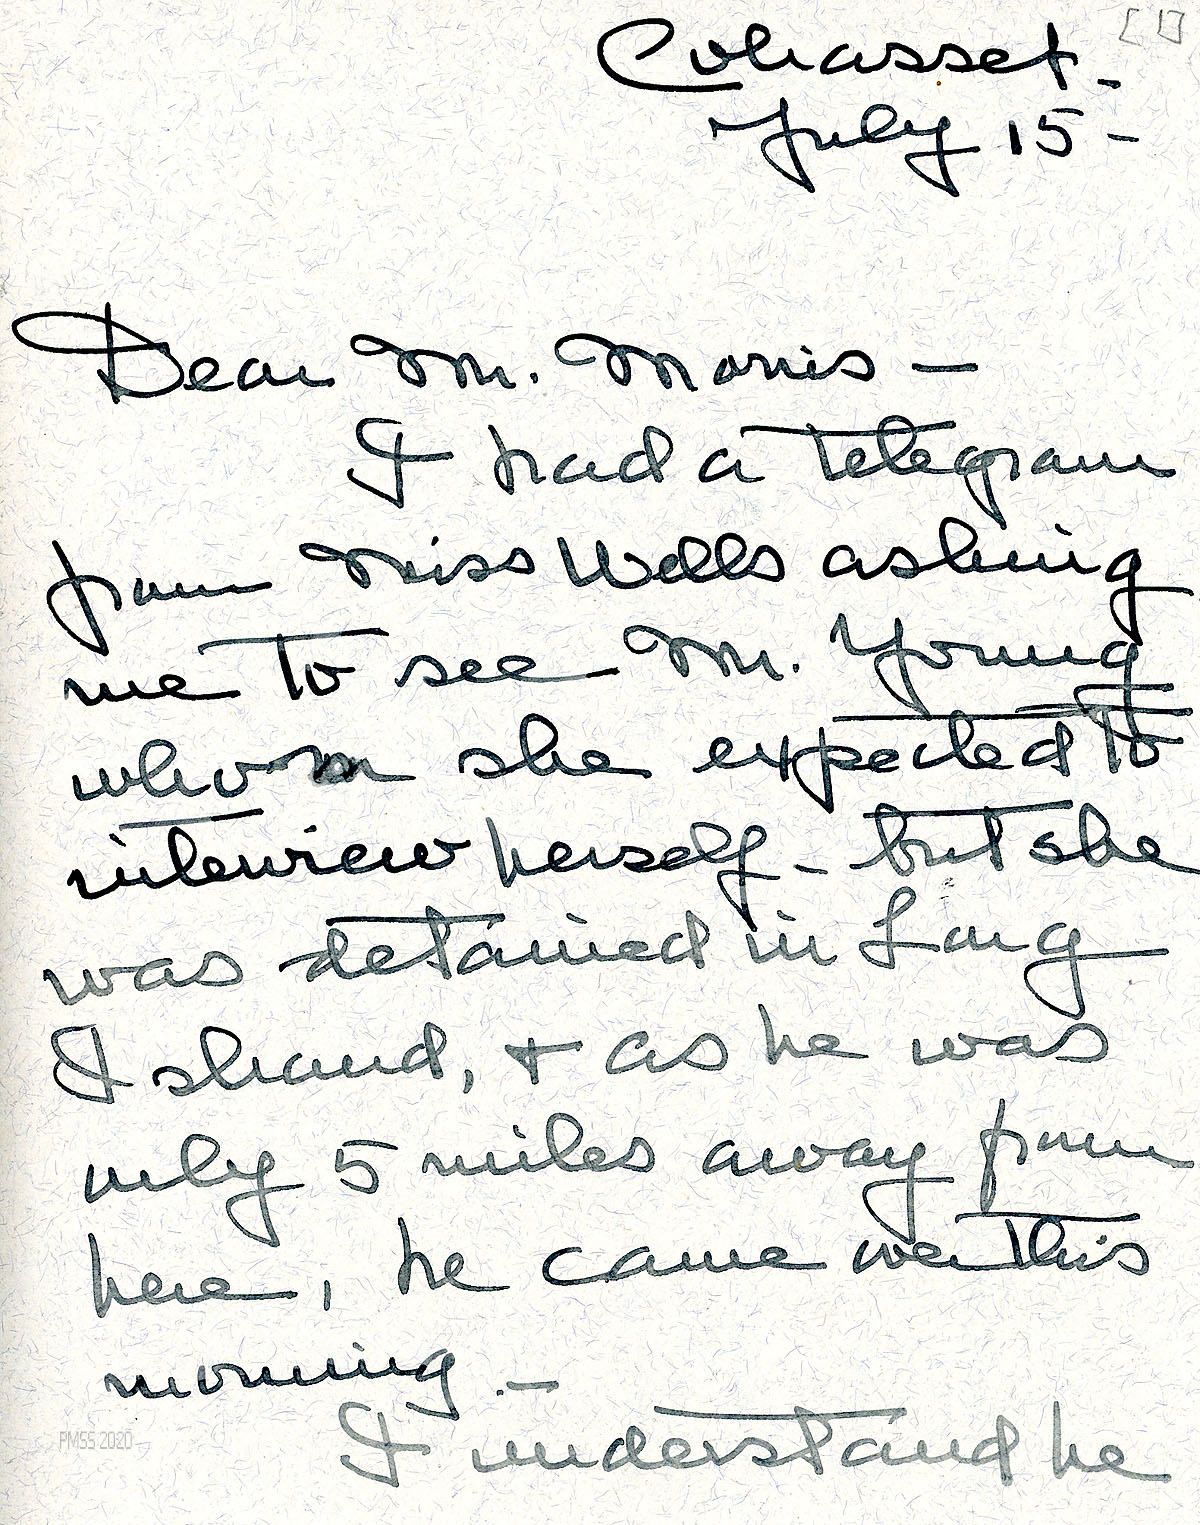 [1]
Cohasset -
July 15 -
Dear Mr. Morris —
I had a telegram
from Miss Wells asking
me to see Mr. Young
whom she expected to
interview herself - but she
was detained in Long
Island, + as he was
only 5 miles away from
here, he came over this
morning. —
I understand he
PMSS 2020